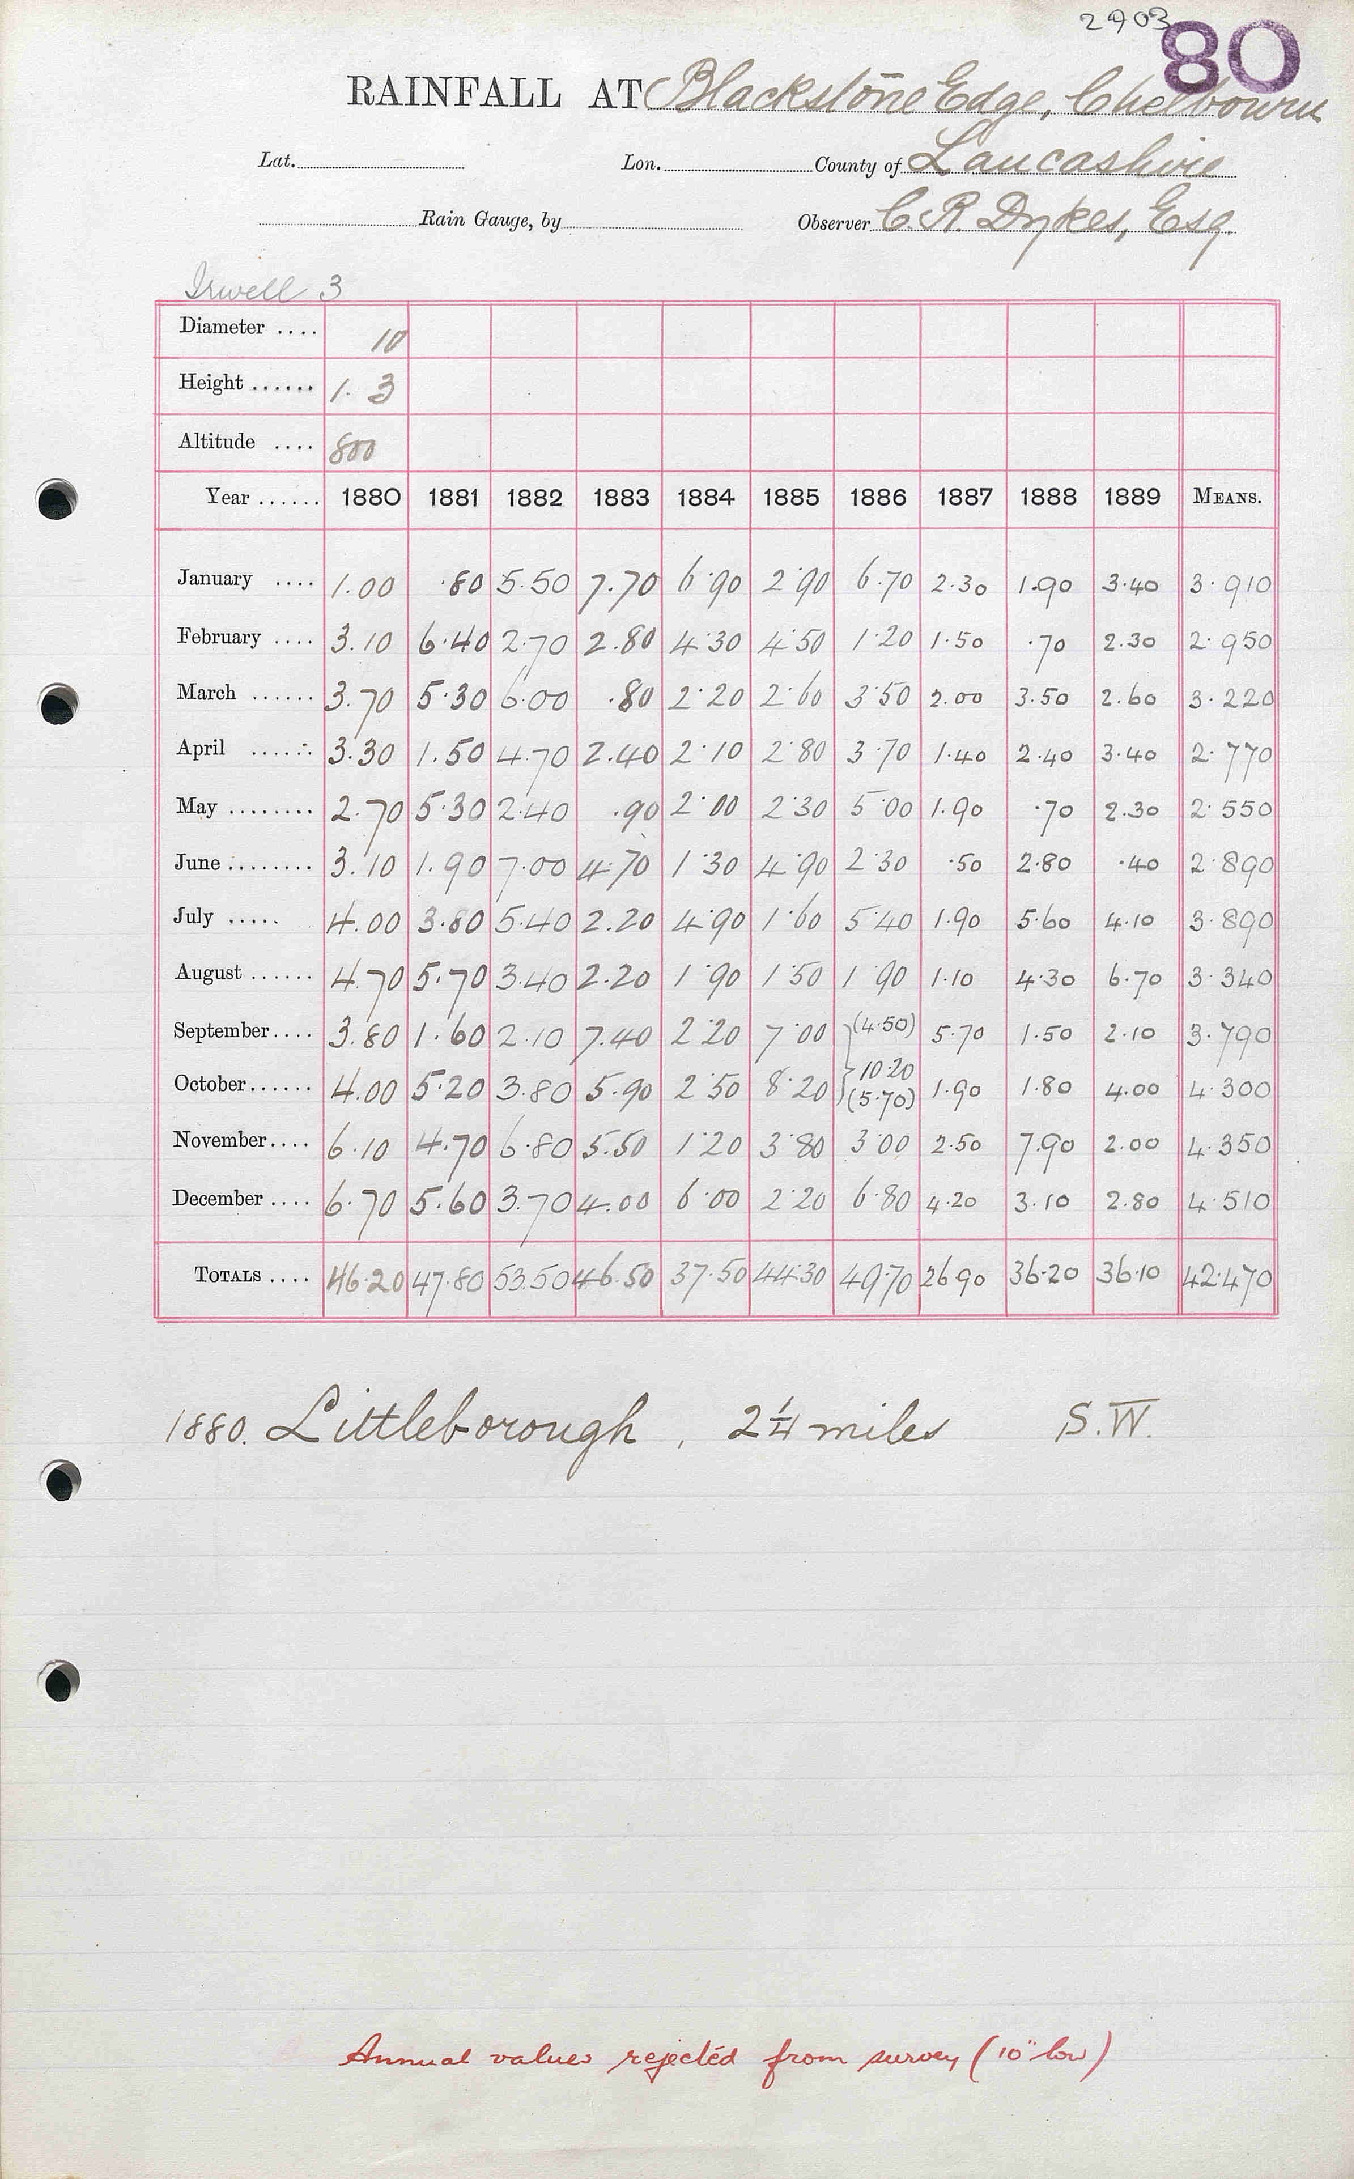 2903 80
RAINFALL AT Blackstone Edge, Chelbourn
Lat. Lon. County of Lancashire
Rain Gauge, by Observer C. R. Dykes, Esq.
Irwell 3
Diameter .... 10
Height ...... 1. 3
Altitude .... 800
Year ...... 1880 1881 1882 1883 1884 1885 1886 1887 1888 1889 MEANS.
January .... 1.00 .80 5.50 7.70 6.90 2.90 6.70 2.30 1.90 3.40 3.910
February .... 3.10 6.40 2.70 2.80 4.30 4.50 1.20 1.50 .70 2.30 2.950
March ...... 3.70 5.30 6.00 .80 2.20 2.60 3.50 2.00 3.50 2.60 3.220
April ...... 3.30 1.50 4.70 2.40 2.10 2.80 3.70 1.40 2.40 3.40 2.770
May ........ 2.70 5.30 2.40 .90 2.00 2.30 5.00 1.90 .70 2.30 2.550
June ........ 3.10 1.90 7.00 4.70 1.30 4.90 2.30 .50 2.80 .40 2.890
July ..... 4.00 3.80 5.40 2.20 4.90 1.60 5.40 1.90 5.60 4.10 3.890
August ...... 4.70 5.70 3.40 2.20 1.90 1.50 1.90 1.10 4.30 6.70 3.340
September .... 3.80 1.60 2.10 7.40 2.20 7.00 (4.50) 5.70 1.50 2.10 3.790
10.20
October ...... 4.00 5.20 3.80 5.90 2.50 8.20 (5.70) 1.90 1.80 4.00 4.300
November .... 6.10 4.70 6.80 5.50 1.20 3.80 3.00 2.50 7.90 2.00 4.350
December .... 6.70 5.60 3.70 4.00 6.00 2.20 6.80 4.20 3.10 2.80 4.510
TOTALS .... 46.20 47.80 53.50 46.50 37.50 44.30 49.70 26.90 36.20 36.10 42.470
1880. Littleborough, 2¼ miles S.W.
Annual values rejected from survey (10" low)